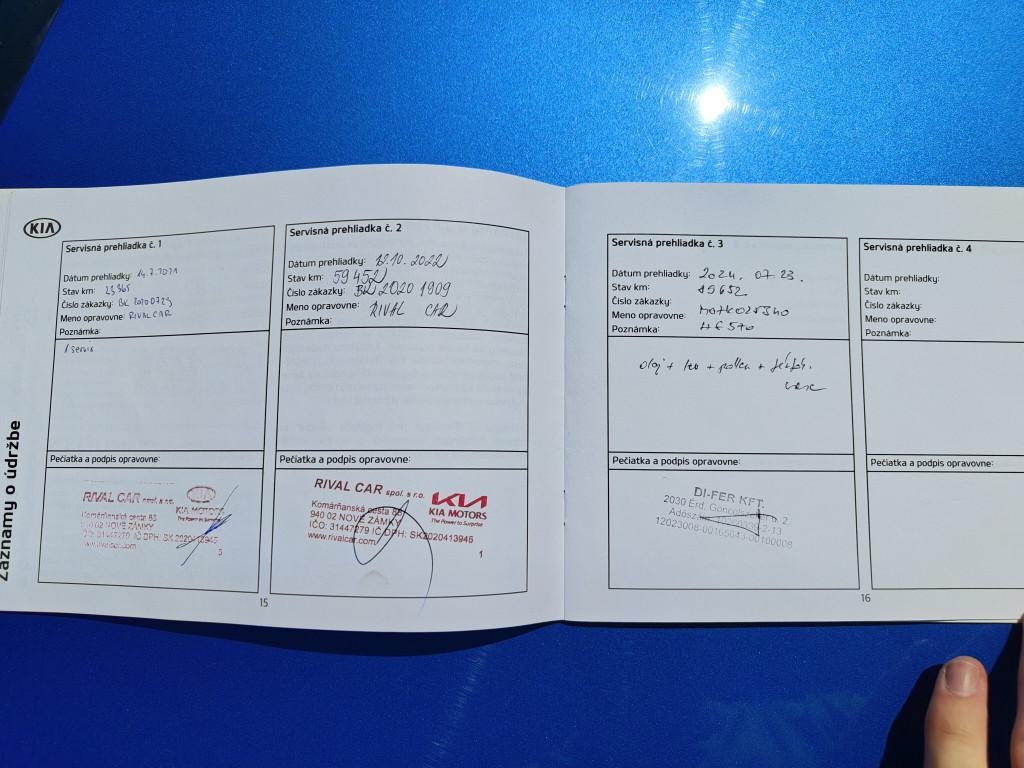 Záznamy o údržbe
KIA
Servisná prehliadka č. 1
Dátum prehliadky: 14.7.2021
Stav km: 23 565
Číslo zákazky: BK 20200723
Meno opravovne: RIVAL CAR
Poznámka:
1 servis
Pečiatka a podpis opravovne:
RIVAL CAR spol. s r.o.
Komárňanská cesta 88
940 02 NOVÉ ZÁMKY
IČO: 31447279 IČ DPH: SK2020413945
www.rivalcar.com
KIA MOTORS
The Power to Surprise
Servisná prehliadka č. 2
Dátum prehliadky: 12.10.2022
Stav km: 59 452
Číslo zákazky: BK 2020 1909
Meno opravovne: RIVAL CAR
Poznámka:
Pečiatka a podpis opravovne:
RIVAL CAR spol. s r.o.
Komárňanská cesta 88
940 02 NOVÉ ZÁMKY
IČO: 31447279 IČ DPH: SK2020413945
www.rivalcar.com
KIA
KIA MOTORS
The Power to Surprise
1
15
Servisná prehliadka č. 3
Dátum prehliadky: 2024. 07. 23.
Stav km: 85652
Číslo zákazky:
Meno opravovne:
Poznámka:
olaj + + pollen +
csere
Pečiatka a podpis opravovne:
DI-FER KFT.
2030 Érd, u. 2
12023008-00165643-00100008
Servisná prehliadka č. 4
Dátum prehliadky:
Stav km:
Číslo zákazky:
Meno opravovne:
Poznámka:
Pečiatka a podpis opravovne:
16